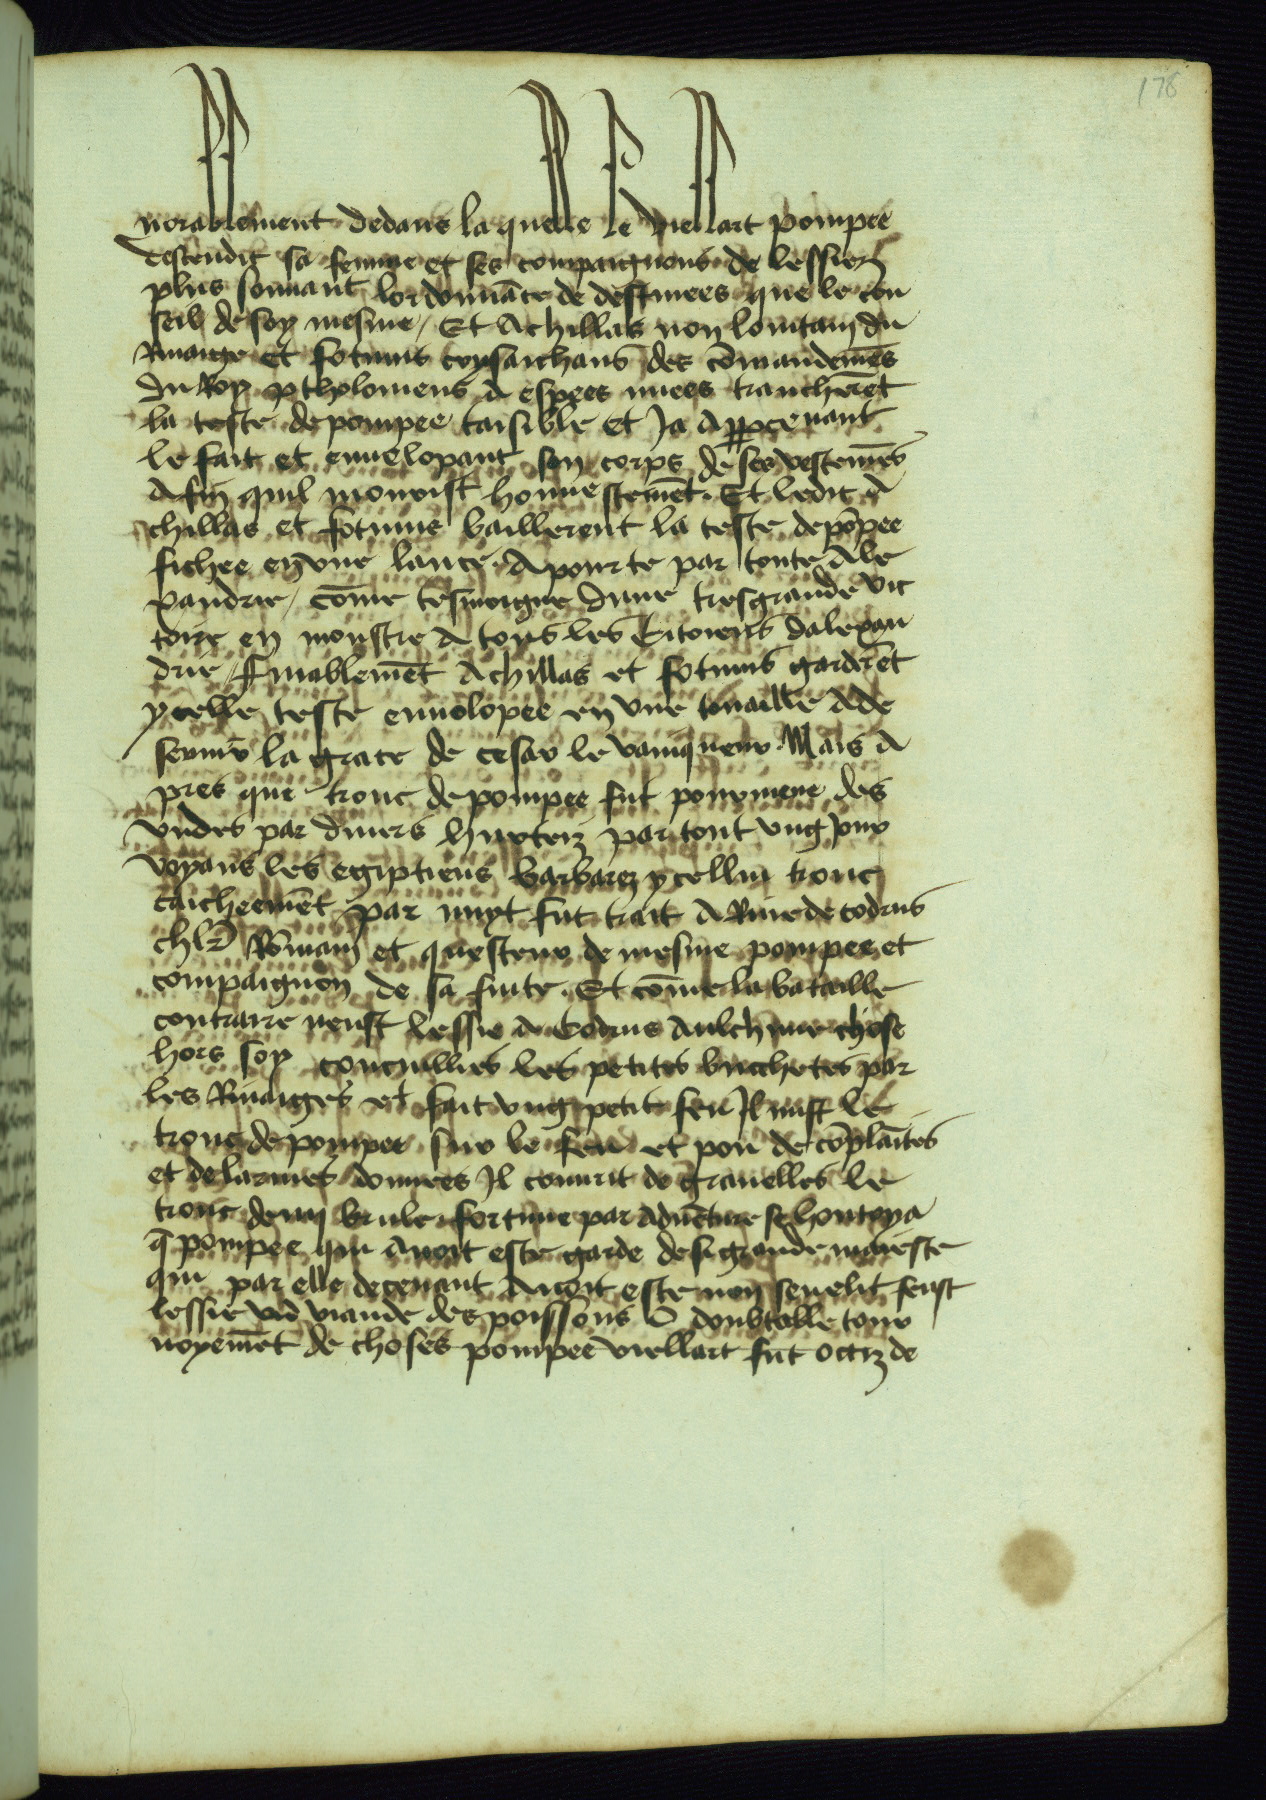 178
norablement dedans la quelle le viellart pompee
descendit sa femme et ses compaignons de lessiez
plus souuant lordonnāce de destinees que le con
seil de soy mesme / Et Achillas non lointain du
Riuaige et fotinus exsaichans des cōmandemēs
du Roy ptholomeus A espees nuees trancherēt
la teste de pompee taisible et Ja apperceuant
le fait et enuelopant son corps de ses vestemēs
Afin quil mourist honnestemēt. Et ledit A
chillas et fotinus baillerent la teste de pōpee
fichee en vne lance. A pourte par toute Ale
xandrie / cōme tesmoigne dune tresgrande vic
toire en monstre A tous les Citoiens dalexan
drie / finablemēt Achillas et fotinus garderēt
ycelle teste enuelopee en vne touaille A de
seruir la grace de cesar le vainqueur. Mais A
pres que tronc de pompee fut pourmene des
vndes par diuers hurteiz par tout vng jour
voyans les egiptiens barbarez ycelluy tronc
caicheemēt par nuyt fut trait A Riue de codrus
chlr̄ Rōmain et questeur de mesme pompee et
compaignon de sa fuite. Et cōme la bataille
contraire neust lessie A Codrus aulchune chose
hors soy concuillies les petites buchetes par
les Riuaiges et fait vng petit feu Il mist le
tronc de pompee sur le feu et pou de cōplaītes
et de larmes donnees Il couurit de grauelles le
tronc demy brule. fortune par aduēture se hontoya
q̄ pompee qui auoit este garde de si grande maieste
qui par elle deceuant Auoit este non seuelit feust
lessie viande des poissons O doubtable tour
noyemēt de choses pompee viellart fut occiz de